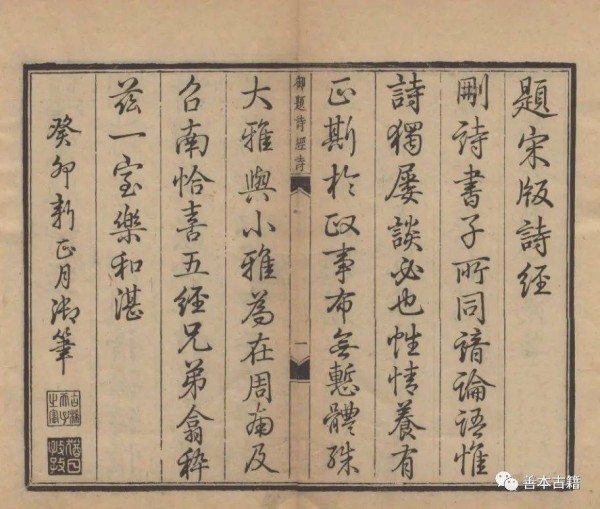 題宋版詩經
刪詩書子所同諳論語惟
詩獨屢談必也性情養有
正斯於政事布無慙體殊
御題詩經詩
一
大雅與小雅為在周南及
召南恰喜五經兄弟翕稡
茲一室樂和湛
癸卯新正月御筆
古稀天子之寶
猶日孜孜
善本古籍